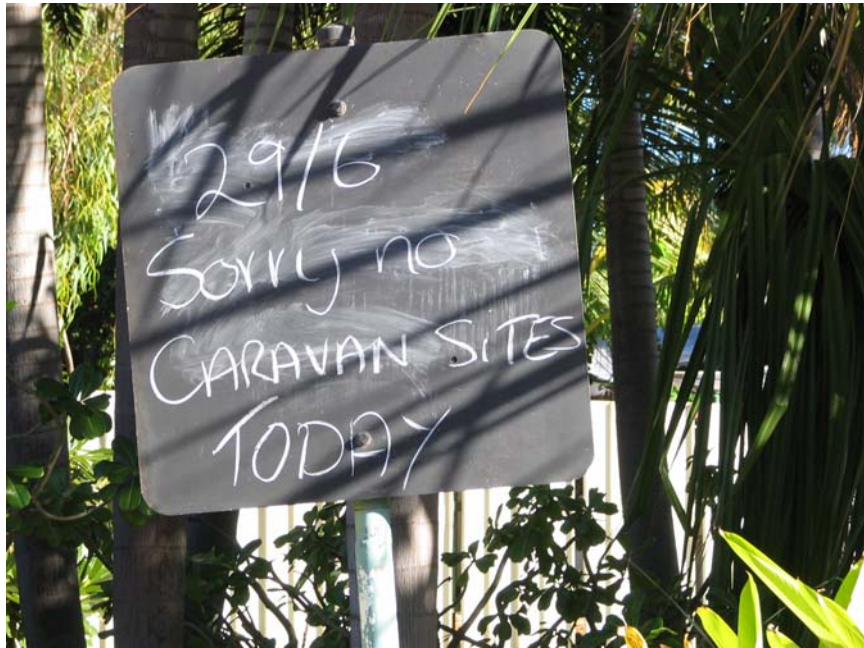 29/6
Sorry no
CARAVAN SiTES
TODAY